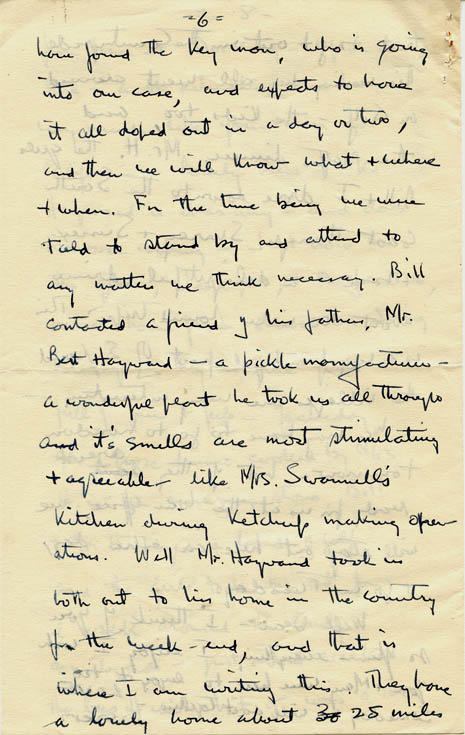 =6=
have found the key man, who is going
into our case, and expects to have
it all doped out in a day or two,
and then we will know what + where
+ when. For the time being we were
told to stand by and attend to
any matters we think necessary. Bill
contacted a friend of his father, Mr.
Bert Hayward – a pickle manufacturer –
a wonderful plant he took us all through
and it's smells are most stimulating
+ agreeable – like Mrs. Swannell's
kitchen during Ketchup making oper-
ations. Well Mr. Hayward took us
both out to his home in the country
for the week-end, and that is
where I am writing this. They have
a lovely home about 25 miles